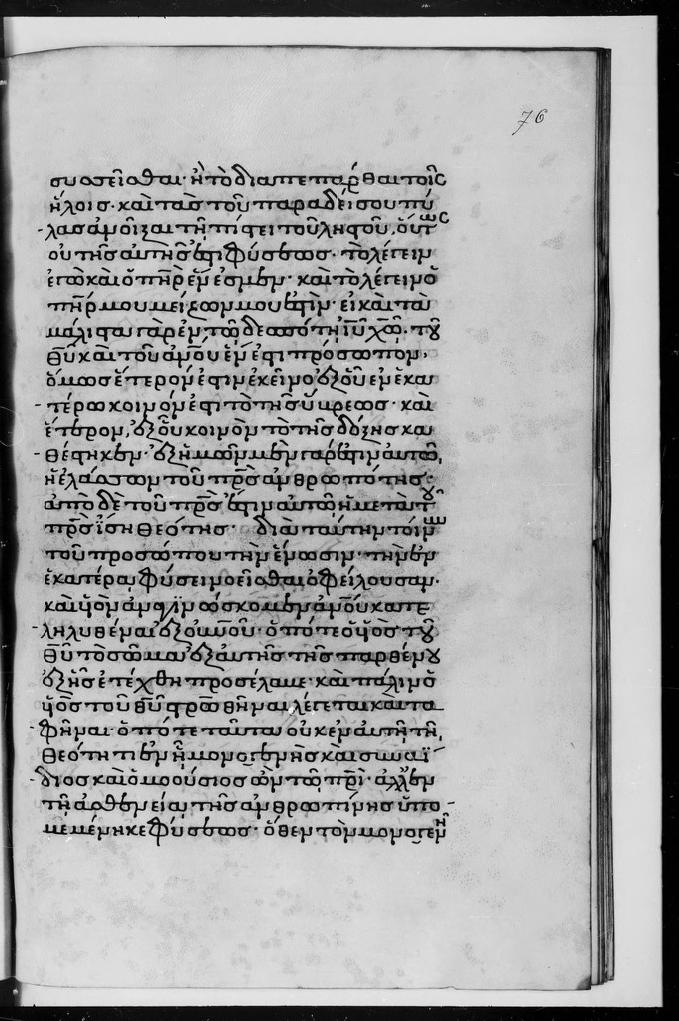 76
συασεῖσθαι· ἢ τὸ διαπεπάρθαι τοῖς
ἥλοις· καὶ τὰσ τοῦ παραδείσου πύ
λασ ἀνοῖξαι τῆ πίστει τοῦ ληστοῦ, οὕτως
οὐ τῆς αὐτῆς ἐστι φύσεως· τὸ λέγειν
ἐγὼ καὶ ὁ πηρ ἕν ἐσμεν· καὶ τὸ λέγειν ὁ
πηρ μου μείζων μου ἐστίν· εἰ καὶ τὰ
μάλιστα γὰρ ἐν τῶ δεσπότη ιυ χω· του
θυ καὶ τοῦ ανου ἕν ἐστι πρόσωπον,
ὅμως ἕτερον ἐστιν ἐκεῖνο ἐξ οὗ ἐν ἑκα
τέρω κοινόν ἐστι τὸ τῆς ὕβρεως· καὶ
ἕτερον, ἐξ οὗ κοινὸν τὸ τῆς δόξης κα
θέστηκεν· ἐξ ἡμῶν μὲν γάρ ἐστιν αὐτῶ,
ἡ ἐλάσσων τοῦ πρσ ἀνθρωπότης·
ἀπὸ δὲ τοῦ πρσ ἐστιν αὐτῶ ἡ μετὰ του
πρσ ἴση θεότης· διὰ ταύτην τοίνυν
τοῦ προσώπου τὴν ἕνωσιν· τὴν ἐν
ἑκατέρα φύσει νοεῖσθαι ὀφείλουσαν·
καὶ υἱὸν ανου ἀναγινώσκομεν κατε
ληλυθέναι ἐξ ουνου· ὁπότε ὁ υἱὸς του
θυ τὸ σῶμα ἐξ αὐτῆς τῆς παρθένου
ἐξ ἧς ἐτέχθη προσέλαβε· καὶ πάλιν ὁ
υἱὸς τοῦ θυ στρωθῆναι λέγεται καὶ τα
φῆναι· ὁπότε ταῦτα οὐκ ἐν αὐτῆ τῆ,
θεότητι ἐν ᾗ μονογενὴς καὶ συναΐ
διος καὶ ὁμοούσιος ὢν τῶ πρι· ἀλλ' ἐν
τῆ ἀσθενεία τῆς ἀνθρωπίνης ὑπο
μεμένηκε φύσεως· ὅθεν τὸν μονογενῆ